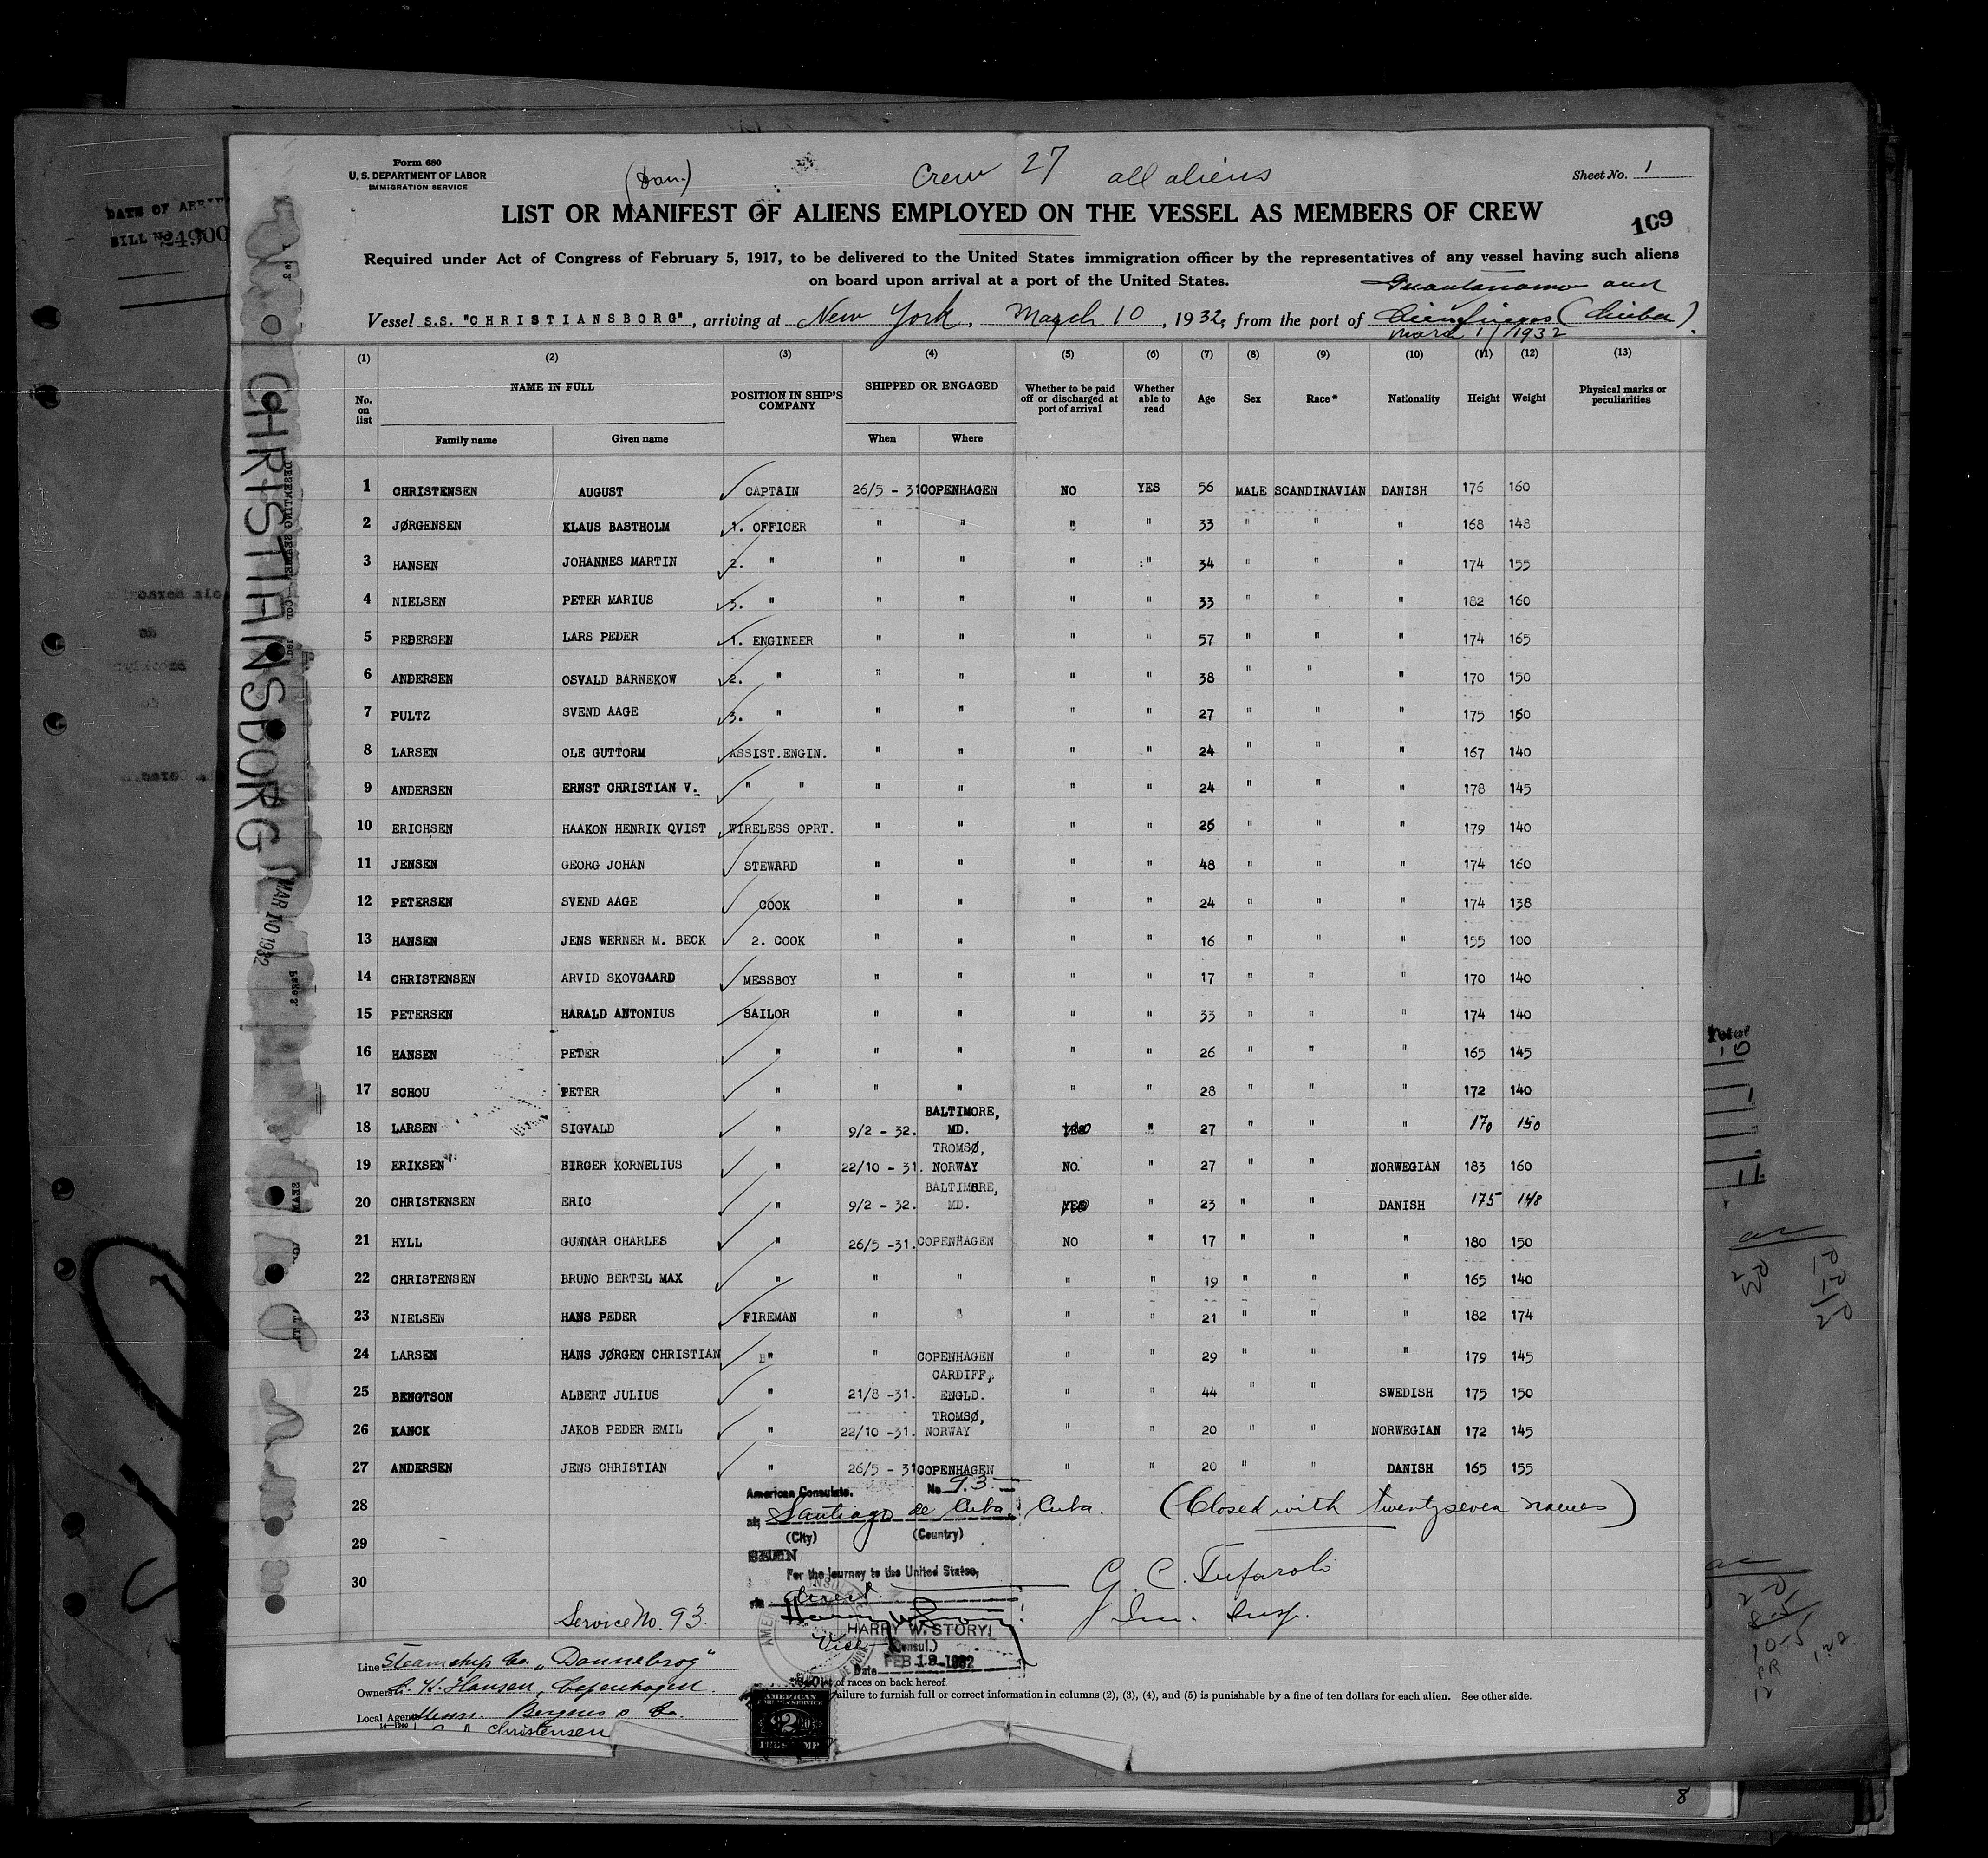 Form 680
U. S. DEPARTMENT OF LABOR
IMMIGRATION SERVICE
(Dan.)
Crew 27 all aliens
Sheet No. 1
LIST OR MANIFEST OF ALIENS EMPLOYED ON THE VESSEL AS MEMBERS OF CREW
109
Required under Act of Congress of February 5, 1917, to be delivered to the United States immigration officer by the representatives of any vessel having such aliens
on board upon arrival at a port of the United States.
Guantanamo and
Vessel S.S. "CHRISTIANSBORG", arriving at New York, March 10, 1932, from the port of Cienfuegos (Cuba).
March 1/1932
(1) (2) (3) (4) (5) (6) (7) (8) (9) (10) (11) (12) (13)
No. on list NAME IN FULL POSITION IN SHIP'S COMPANY SHIPPED OR ENGAGED Whether to be paid off or discharged at port of arrival Whether able to read Age Sex Race* Nationality Height Weight Physical marks or peculiarities
Family name Given name When Where
1 CHRISTENSEN AUGUST CAPTAIN 26/5 - 31 COPENHAGEN NO YES 56 MALE SCANDINAVIAN DANISH 176 160
2 JØRGENSEN KLAUS BASTHOLM 1. OFFICER " " " " 33 " " " 168 148
3 HANSEN JOHANNES MARTIN 2. " " " " " 34 " " " 174 155
4 NIELSEN PETER MARIUS 3. " " " " " 33 " " " 182 160
5 PEDERSEN LARS PEDER 1. ENGINEER " " " " 57 " " " 174 165
6 ANDERSEN OSVALD BARNEKOW 2. " " " " " 38 " " " 170 150
7 PULTZ SVEND AAGE 3. " " " " " 27 " " " 175 150
8 LARSEN OLE GUTTORM ASSIST.ENGIN. " " " " 24 " " " 167 140
9 ANDERSEN ERNST CHRISTIAN V. " " " " " " 24 " " " 178 145
10 ERICHSEN HAAKON HENRIK QVIST WIRELESS OPRT. " " " " 25 " " " 179 140
11 JENSEN GEORG JOHAN STEWARD " " " " 48 " " " 174 160
12 PETERSEN SVEND AAGE COOK " " " " 24 " " " 174 138
13 HANSEN JENS WERNER M. BECK 2. COOK " " " " 16 " " " 155 100
14 CHRISTENSEN ARVID SKOVGAARD MESSBOY " " " " 17 " " " 170 140
15 PETERSEN HARALD ANTONIUS SAILOR " " " " 33 " " " 174 140
16 HANSEN PETER " " " " " 26 " " " 165 145
17 SCHOU PETER " " " " " 28 " " " 172 140
18 LARSEN SIGVALD " 9/2 - 32. BALTIMORE, MD. " 27 " " " 170 150
19 ERIKSEN BIRGER KORNELIUS " 22/10 - 31. TROMSØ, NORWAY NO. " 27 " " NORWEGIAN 183 160
20 CHRISTENSEN ERIC " 9/2 - 32. BALTIMORE, MD. " 23 " " DANISH 175 148
21 HYLL GUNNAR CHARLES " 26/5 -31. COPENHAGEN NO " 17 " " " 180 150
22 CHRISTENSEN BRUNO BERTEL MAX " " " " " 19 " " " 165 140
23 NIELSEN HANS PEDER FIREMAN " " " " 21 " " " 182 174
24 LARSEN HANS JØRGEN CHRISTIAN " " COPENHAGEN " " 29 " " " 179 145
25 BENGTSON ALBERT JULIUS " 21/8 -31. CARDIFF, ENGLD. " " 44 " " SWEDISH 175 150
26 KANCK JAKOB PEDER EMIL " 22/10 -31. TROMSØ, NORWAY " " 20 " " NORWEGIAN 172 145
27 ANDERSEN JENS CHRISTIAN " 26/5 - 31 COPENHAGEN " " 20 " " DANISH 165 155
American Consulate. No 93
28 at Santiago de Cuba, Cuba. (Closed with twentyseven names)
(City) (Country)
29
SEEN
For the journey to the United States,
30
via direct
G. C. Tufarolo
Imm. Insp.
Service No. 93.
HARRY W. STORY
Vice (Consul.)
Date FEB 19 1932
Line Steamship Co. "Dannebrog"
Owners C. K. Hansen, Copenhagen.
Local Agents Messrs. Bergens & Co.
14-1240
Christensen
of races on back hereof.
failure to furnish full or correct information in columns (2), (3), (4), and (5) is punishable by a fine of ten dollars for each alien. See other side.
AMERICAN
2
CHRISTIANSBORG
MAR 10 1932
DATE OF
BILL No. 24900
8